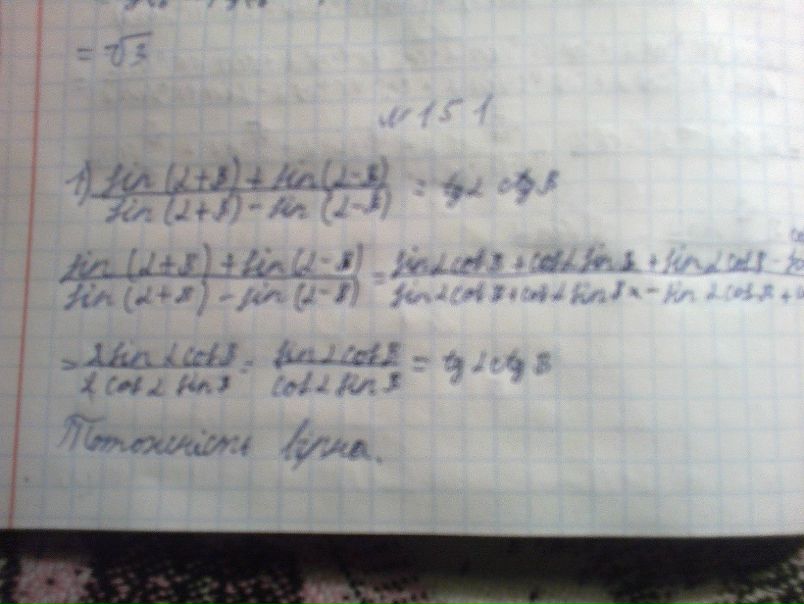 = √3
№ 151
1) sin(α+β)+sin(α-β) / sin(α+β)-sin(α-β) = tgα ctgβ
sin(α+β)+sin(α-β) / sin(α+β)-sin(α-β) = sinαcosβ+cosαsinβ+sinαcosβ- / sinαcosβ+cosαsinβ-sinαcosβ+
= 2sinαcosβ / 2cosαsinβ = sinαcosβ / cosαsinβ = tgαctgβ
Тотожність вірна.